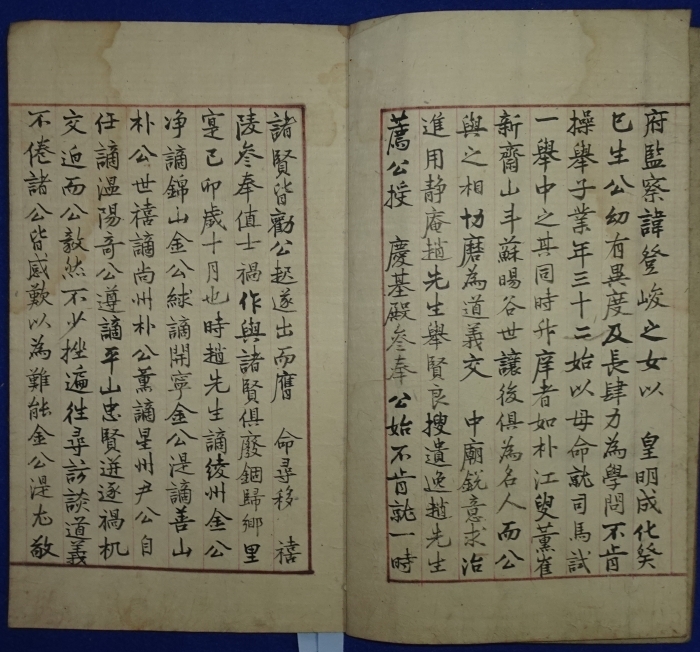 府監察諱登峻之女以　皇明成化癸
巳生公幼有異度及長肆力為學問不肯
操舉子業年三十二始以母命就司馬試
一舉中之其同時升庠者如朴江叟薰崔
新齋山斗蘇暘谷世讓後俱為名人而公
與之相切磨為道義交　中廟銳意求治
進用静庵趙先生舉賢良搜遺逸趙先生
薦公授　慶基殿參奉公始不肯就一時
諸賢皆勸公起遂出而膺　命尋移　禧
陵參奉值士禍作與諸賢俱廢錮歸鄉里
寔己卯歲十月也時趙先生謫綾州金公
净謫錦山金公絿謫開寧金公湜謫善山
朴公世禧謫尚州朴公薰謫星州尹公自
任謫溫陽奇公遵謫平山忠賢迸逐禍机
交迫而公毅然不少挫遍徃尋訪談道義
不倦諸公皆感歎以為難能金公湜尤敬